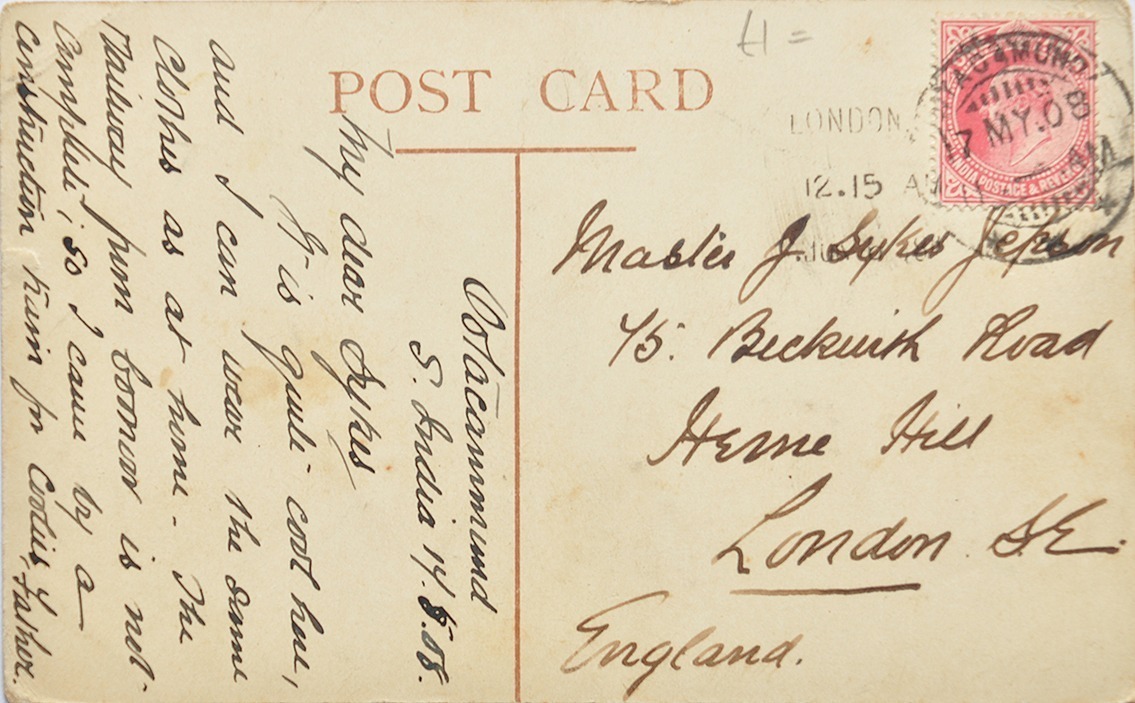 £1 =
POST CARD
LONDON,
12.15 A
OOTACAMUND
17 MY.08
AM
INDIA POSTAGE & REVENUE
Master J. Sykes Jepson
45. Beckwith Road
Herne Hill
London S.E.
England.
Ootacammund
S. India 14.5.08.
My dear Sykes
It is quite cool here,
and I can wear the same
clothes as at home. The
Railway from Coonoor is not
completed, so I came by a
construction train for Coolies, Father.